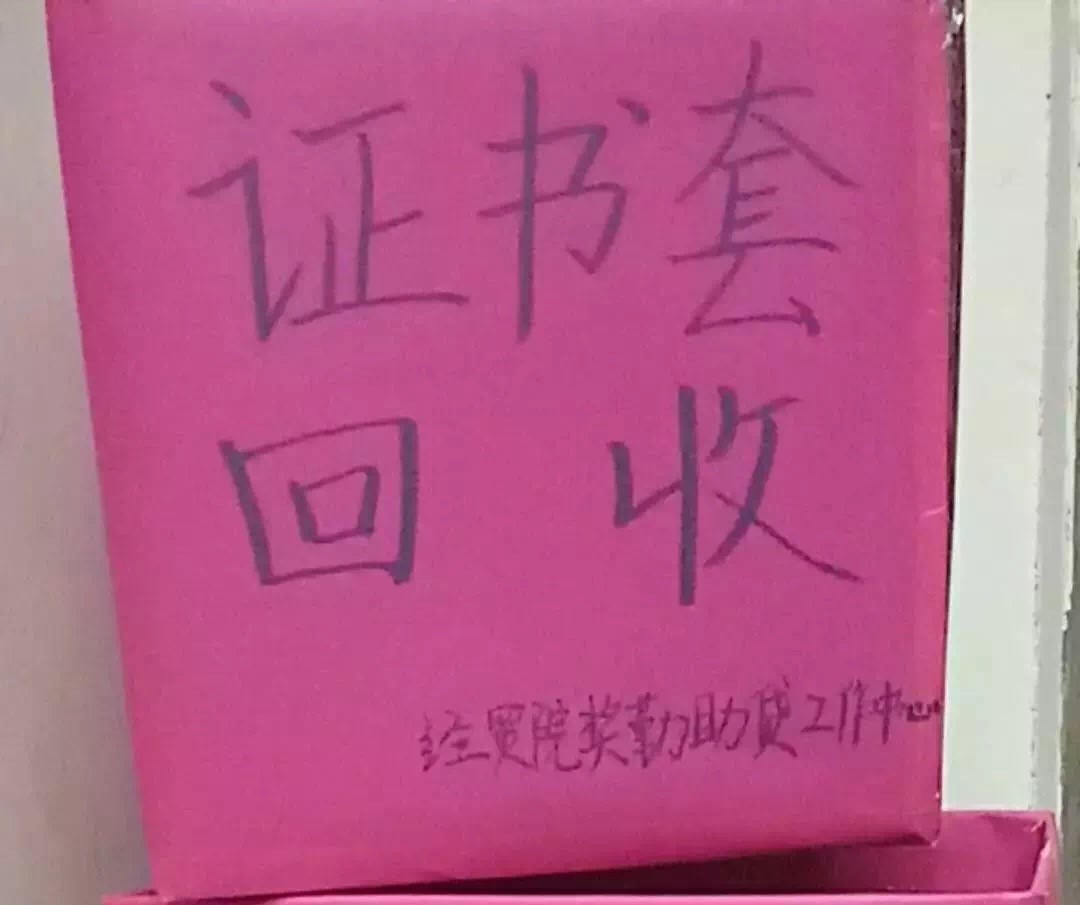 证书套
回收
经贸院奖勤助贷工作中心